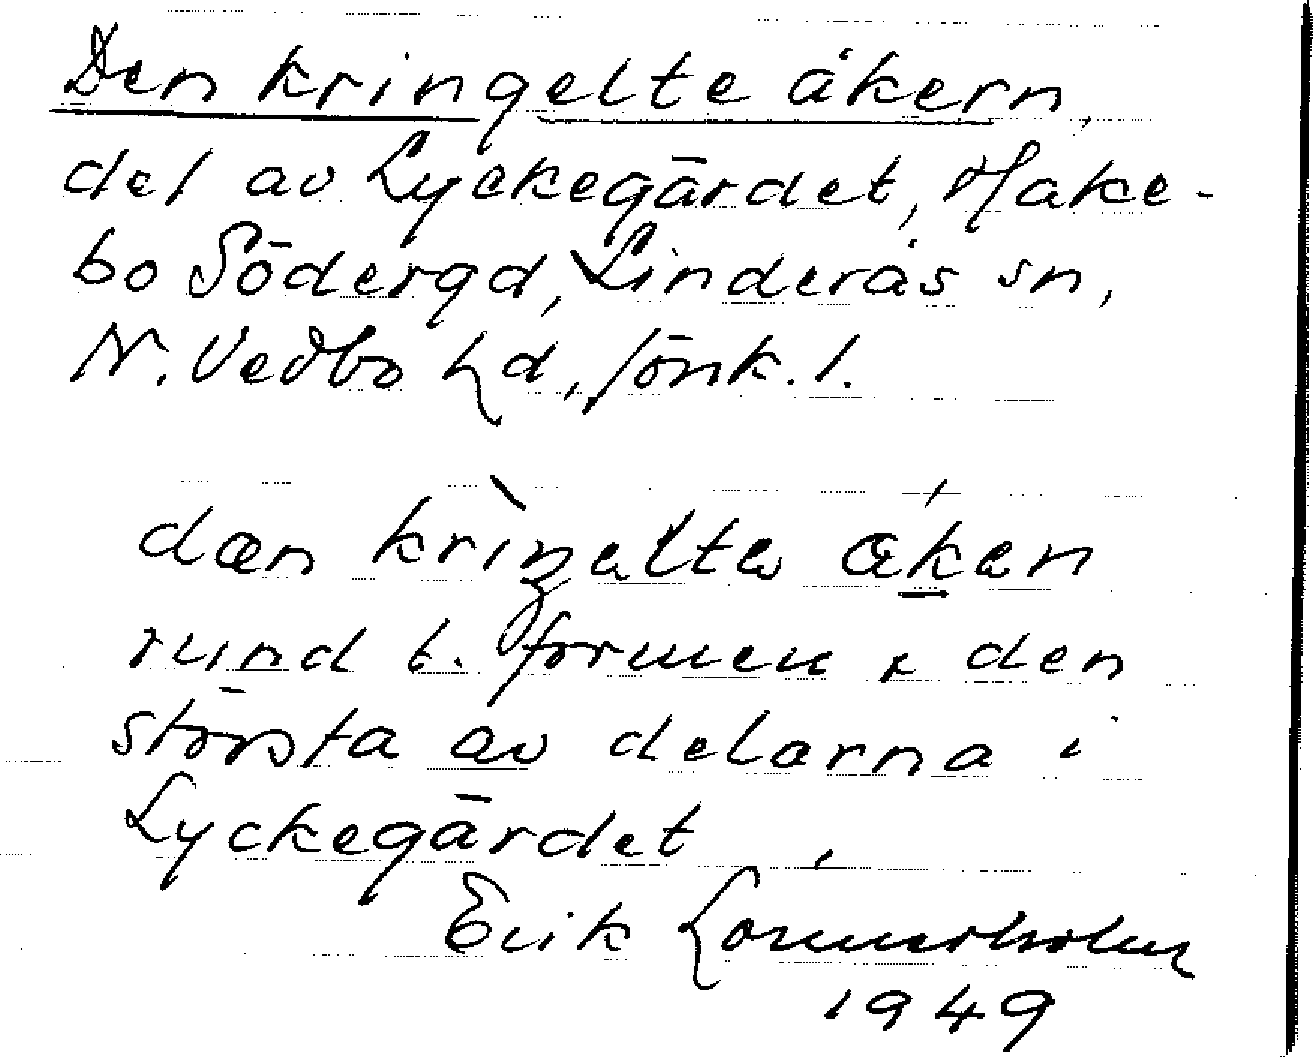 Den kringelte åkern,
del av Lyckegärdet, Hake-
bo Södergd, Linderås sn,
N. Vedbo hd, Jönk. l.
dæn
rund t. formen x den
största av delarna i
Lyckegärdet
Erik Lommerholm
1949